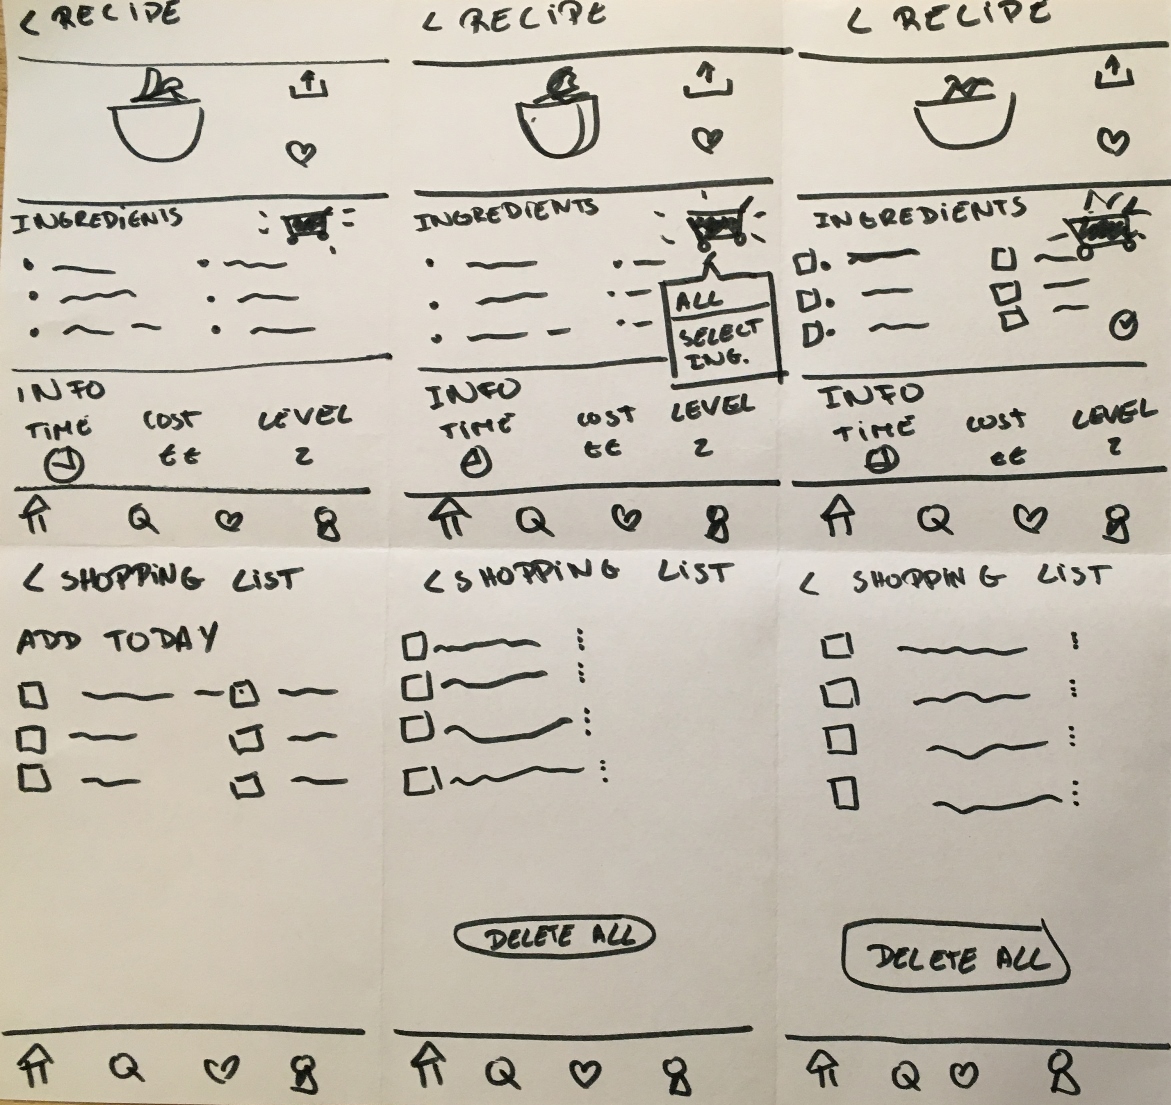 < RECIPE
INGREDIENTS
INFO
TIME COST LEVEL
€€ 2
< RECIPE
INGREDIENTS
ALL
SELECT
ING.
INFO
TIME COST LEVEL
€€ 2
< RECIPE
INGREDIENTS
INFO
TIME COST LEVEL
€€ 2
< SHOPPING LIST
ADD TODAY
< SHOPPING LIST
DELETE ALL
< SHOPPING LIST
DELETE ALL